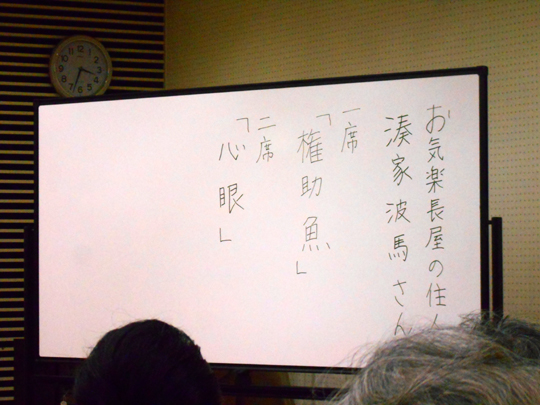 お気楽長屋の住人
湊家波馬さん
一席
「権助魚」
二席
「心眼」